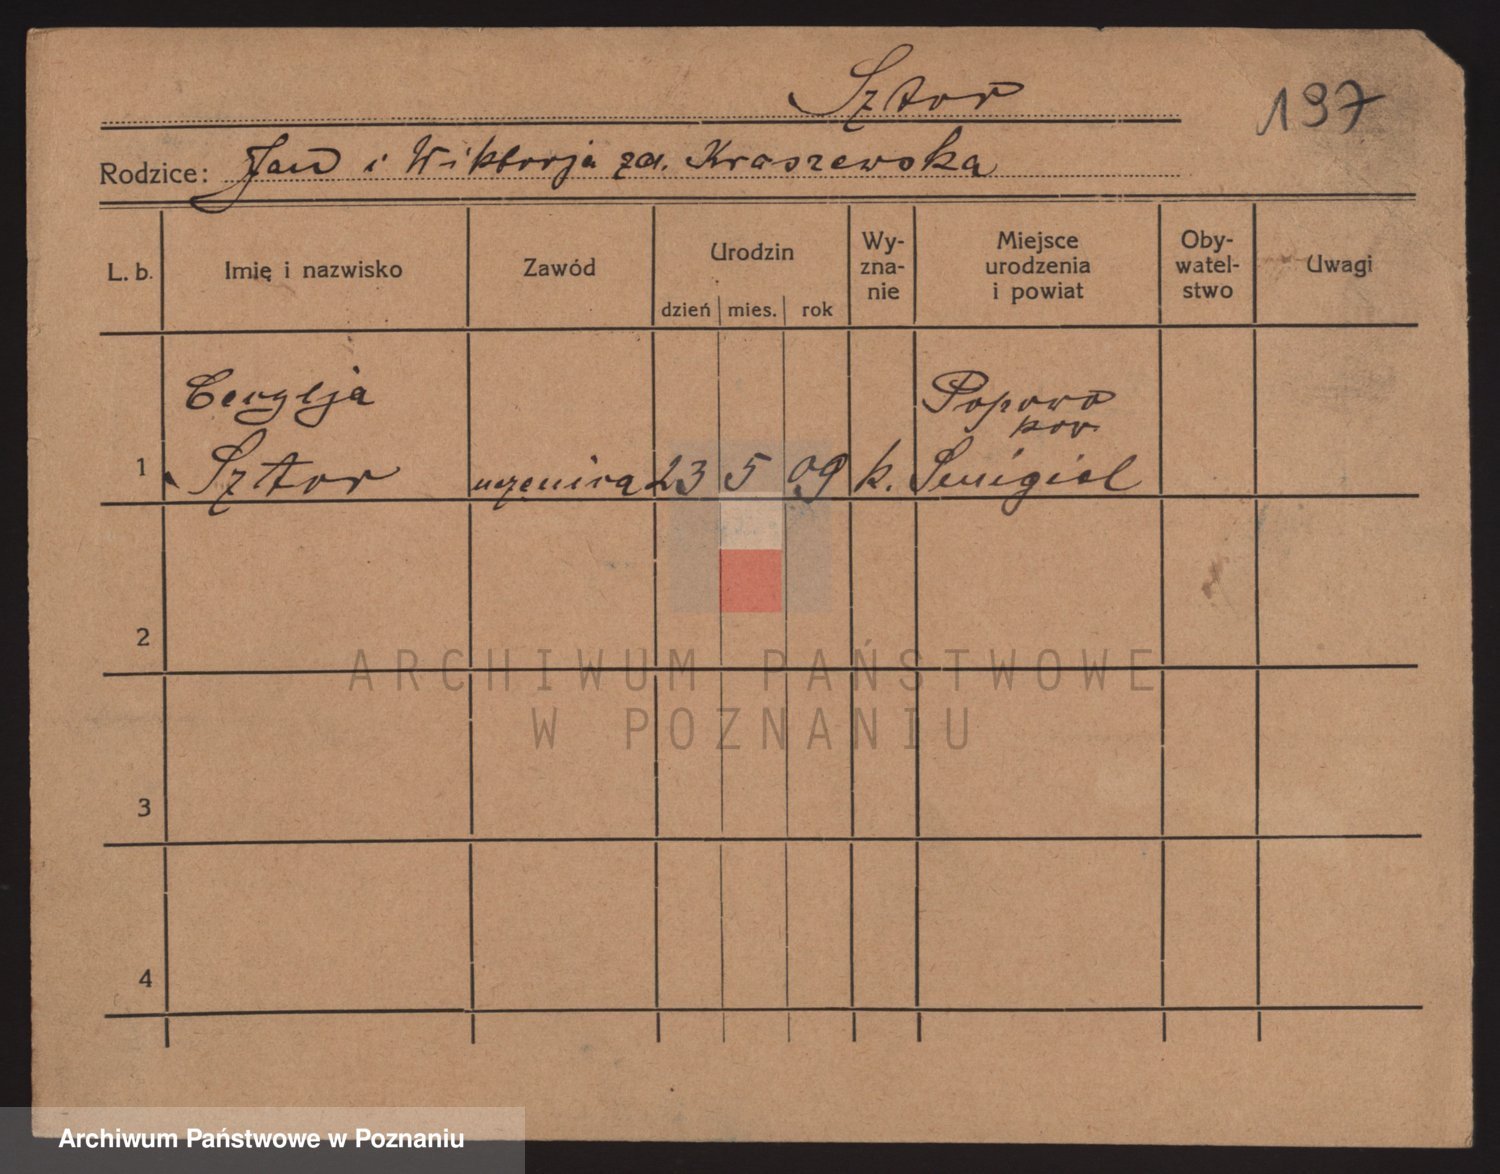 Sztor
197
Rodzice: Jan i Wiktorja zd. Kraszewska
L. b.
Imię i nazwisko
Zawód
Urodzin
dzień mies. rok
Wy-
zna-
nie
Miejsce
urodzenia
i powiat
Oby-
watel-
stwo
Uwagi
1
Cecylja
Sztor
uczenica
23 5 09
k.
Popowo
pow.
Smigiel
2
3
4
ARCHIWUM PAŃSTWOWE
W POZNANIU
Archiwum Państwowe w Poznaniu